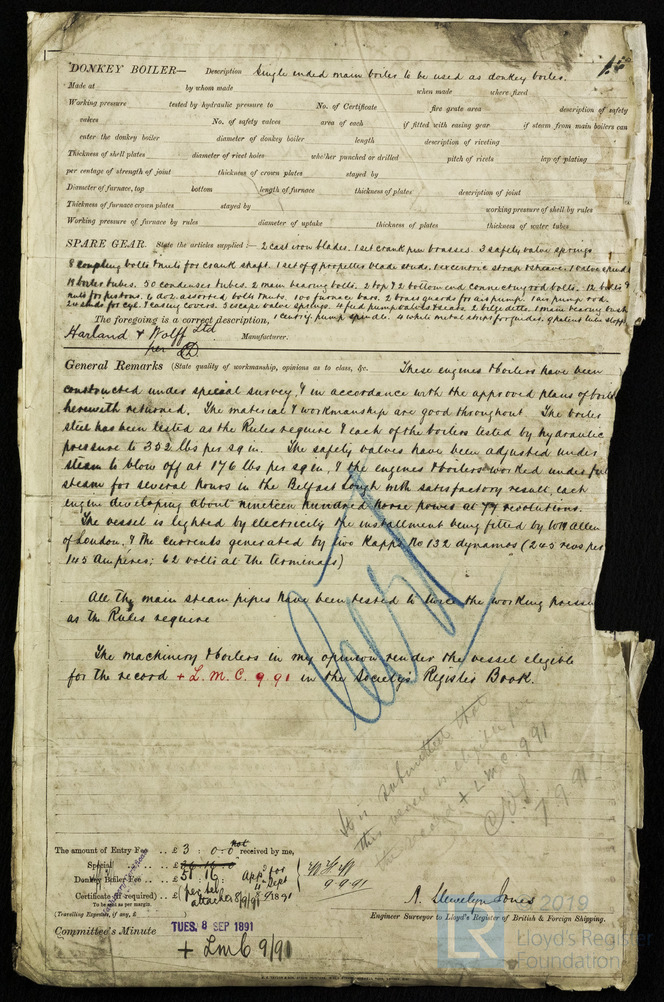 DONKEY BOILER— Description Single ended main boiler to be used as donkey boiler.
Made at by whom made when made where fixed
Working pressure tested by hydraulic pressure to No. of Certificate fire grate area description of safety
valves No. of safety valves area of each if fitted with easing gear if steam from main boilers can
enter the donkey boiler diameter of donkey boiler length description of riveting
Thickness of shell plates diameter of rivet holes whether punched or drilled pitch of rivets lap of plating
per centage of strength of joint thickness of crown plates stayed by
Diameter of furnace, top bottom length of furnace thickness of plates description of joint
Thickness of furnace crown plates stayed by working pressure of shell by rules
Working pressure of furnace by rules diameter of uptake thickness of plates thickness of water tubes
SPARE GEAR. State the articles supplied:— 2 cast iron blades. 1 set crank pin brasses. 3 safety valve springs
8 coupling bolts & nuts for crank shaft. 1 set of propeller blade studs. 1 eccentric strap & sheave. 1 valve spindle
18 boiler tubes. 50 condenser tubes. 2 main bearing bolts. 2 top & 2 bottom end connecting rod bolts. 12 bolts &
nuts for pistons. 6 doz. assorted bolts & nuts. 100 furnace bars. 2 brass guards for air pump. 1 air pump rod.
2 studs for cyl. & casing covers. 3 escape valve springs. 4 feed pump valves & seats. 2 bilge ditto. 1 main bearing bush
The foregoing is a correct description, 1 centrif. pump spindle. 4 white metal strips for guides.
Harland & Wolff Ltd Manufacturer.
per
General Remarks (State quality of workmanship, opinions as to class, &c. These engines & boilers have been
constructed under special survey, & in accordance with the approved plans of boiler
herewith returned. The material & workmanship are good throughout. The boiler
steel has been tested as the Rules require & each of the boilers tested by hydraulic
pressure to 352 lbs per sq in. The safety valves have been adjusted under
steam to blow off at 176 lbs per sq in, & the engines & boilers worked under full
steam for several hours in the Belfast Lough with satisfactory result, each
engine developing about nineteen hundred horse power at 77 revolutions.
The vessel is lighted by electricity the installment being fitted by W H Allen
of London, & the currents generated by two Kapps No 132 dynamos (245 revs per
145 Ampères; 62 volts at the terminals)
All the main steam pipes have been tested to twice the working pressure
as the Rules require
The machinery & boilers in my opinion render the vessel eligible
for the record + L. M. C. 9 91 in the Society's Register Book.
It is submitted that
this vessel is eligible for
the record + LMC 9 91
7.9.91
The amount of Entry Fee .. £ 3 : 0 : 0 not received by me,
Special .. £
Donkey Boiler Fee .. £ 51 : 16 : App for
Certificate (if required) .. £ (per sel attached 8/9/91 1891
To be sent as per margin.
(Travelling Expenses, if any, £ )
9.9.91
A. Llewelyn Jones
Engineer Surveyor to Lloyd's Register of British & Foreign Shipping.
Committee's Minute TUES. 8 SEP 1891
+ Lmc 9/91
2019
LR
Lloyd's Register
Foundation